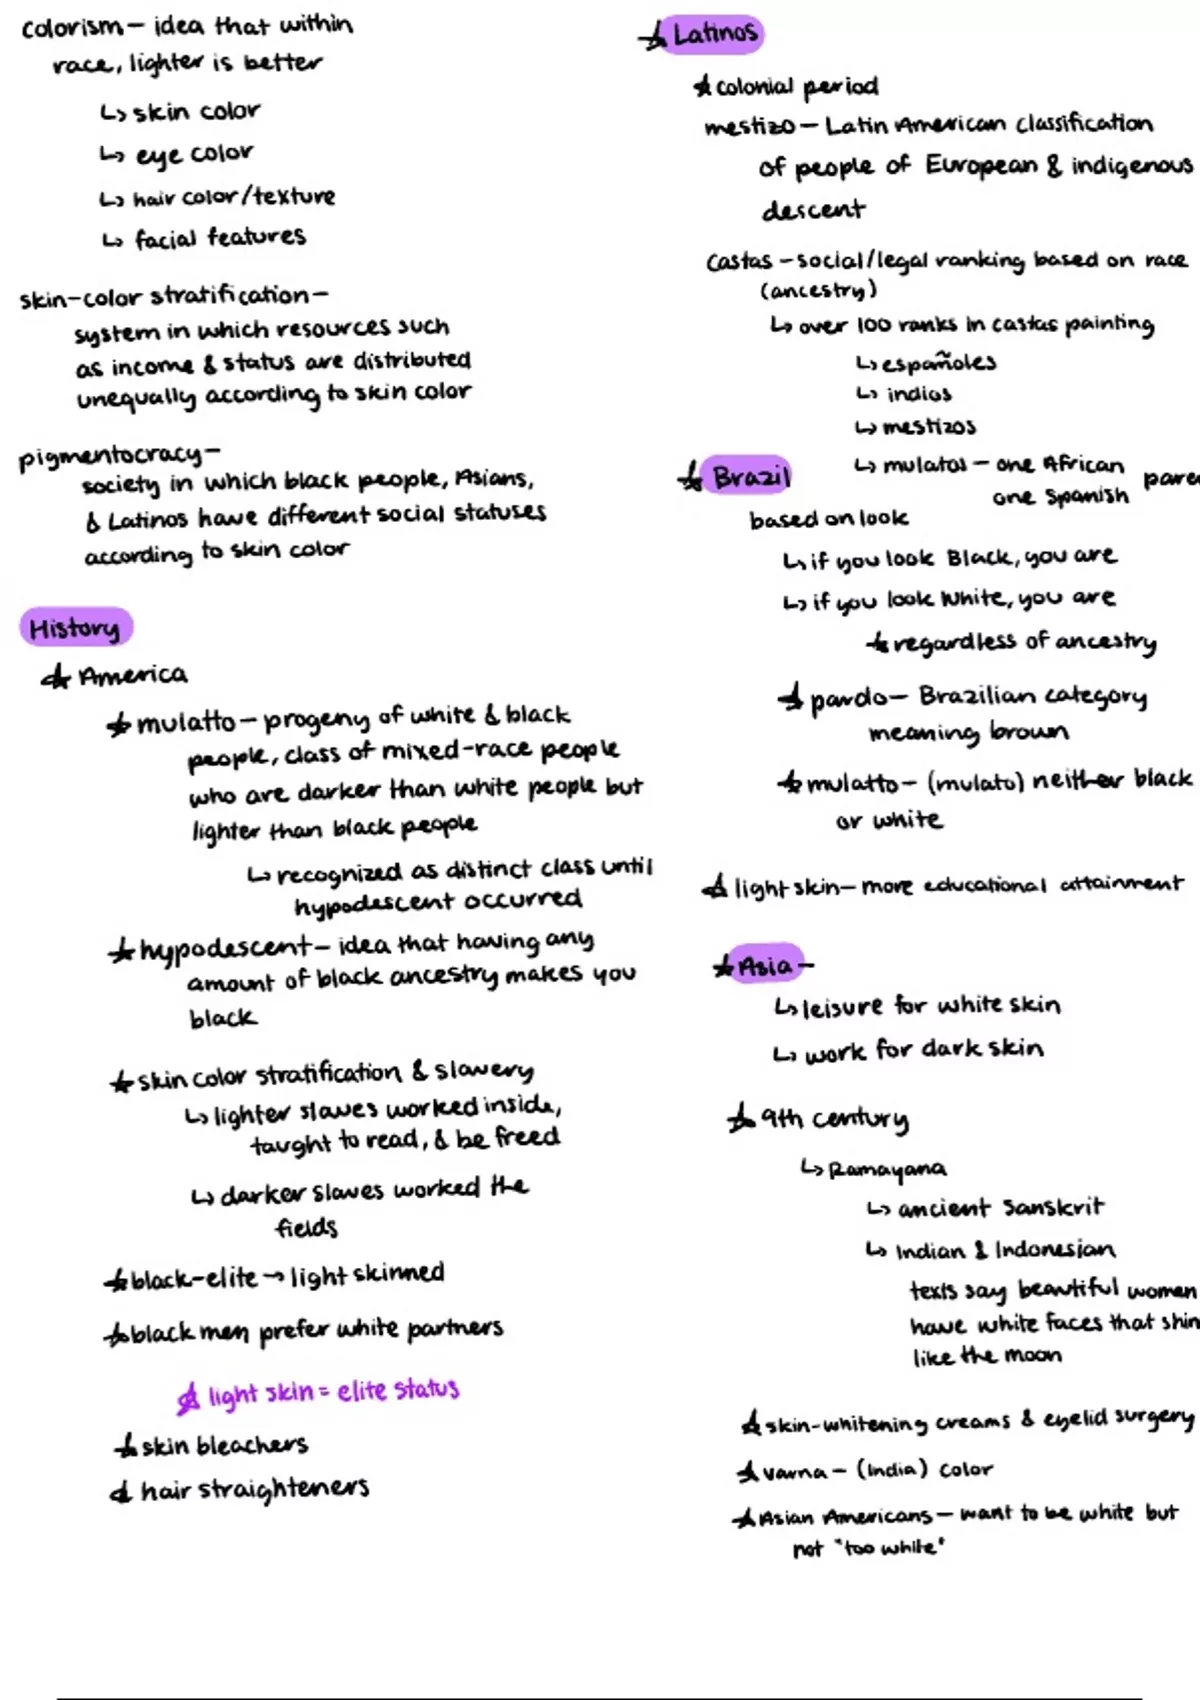 colorism – idea that within
race, lighter is better
↳ skin color
↳ eye color
↳ hair color/texture
↳ facial features
skin-color stratification –
system in which resources such
as income & status are distributed
unequally according to skin color
pigmentocracy –
society in which black people, Asians,
& Latinos have different social statuses
according to skin color
History
☆ America
☆ mulatto – progeny of white & black
people, class of mixed-race people
who are darker than white people but
lighter than black people
↳ recognized as distinct class until
hypodescent occurred
☆ hypodescent – idea that having any
amount of black ancestry makes you
black
☆ skin color stratification & slavery
↳ lighter slaves worked inside,
taught to read, & be freed
↳ darker slaves worked the
fields
☆ black-elite → light skinned
☆ black men prefer white partners
☆ light skin = elite status
☆ skin bleachers
☆ hair straighteners
☆ Latinos
☆ colonial period
mestizo – Latin American classification
of people of European & indigenous
descent
castas – social/legal ranking based on race
(ancestry)
↳ over 100 ranks in castas painting
↳ españoles
↳ indios
↳ mestizos
↳ mulatos – one African
one Spanish
☆ Brazil
based on look
↳ if you look Black, you are
↳ if you look White, you are
☆ regardless of ancestry
☆ pardo – Brazilian category
meaning brown
☆ mulatto – (mulato) neither black
or white
☆ light skin – more educational attainment
☆ Asia –
↳ leisure for white skin
↳ work for dark skin
☆ 9th century
↳ Ramayana
↳ ancient Sanskrit
↳ Indian & Indonesian
texts say beautiful women
have white faces that shin
like the moon
☆ skin-whitening creams & eyelid surgery
☆ varna – (India) color
☆ Asian Americans – want to be white but
not "too white"